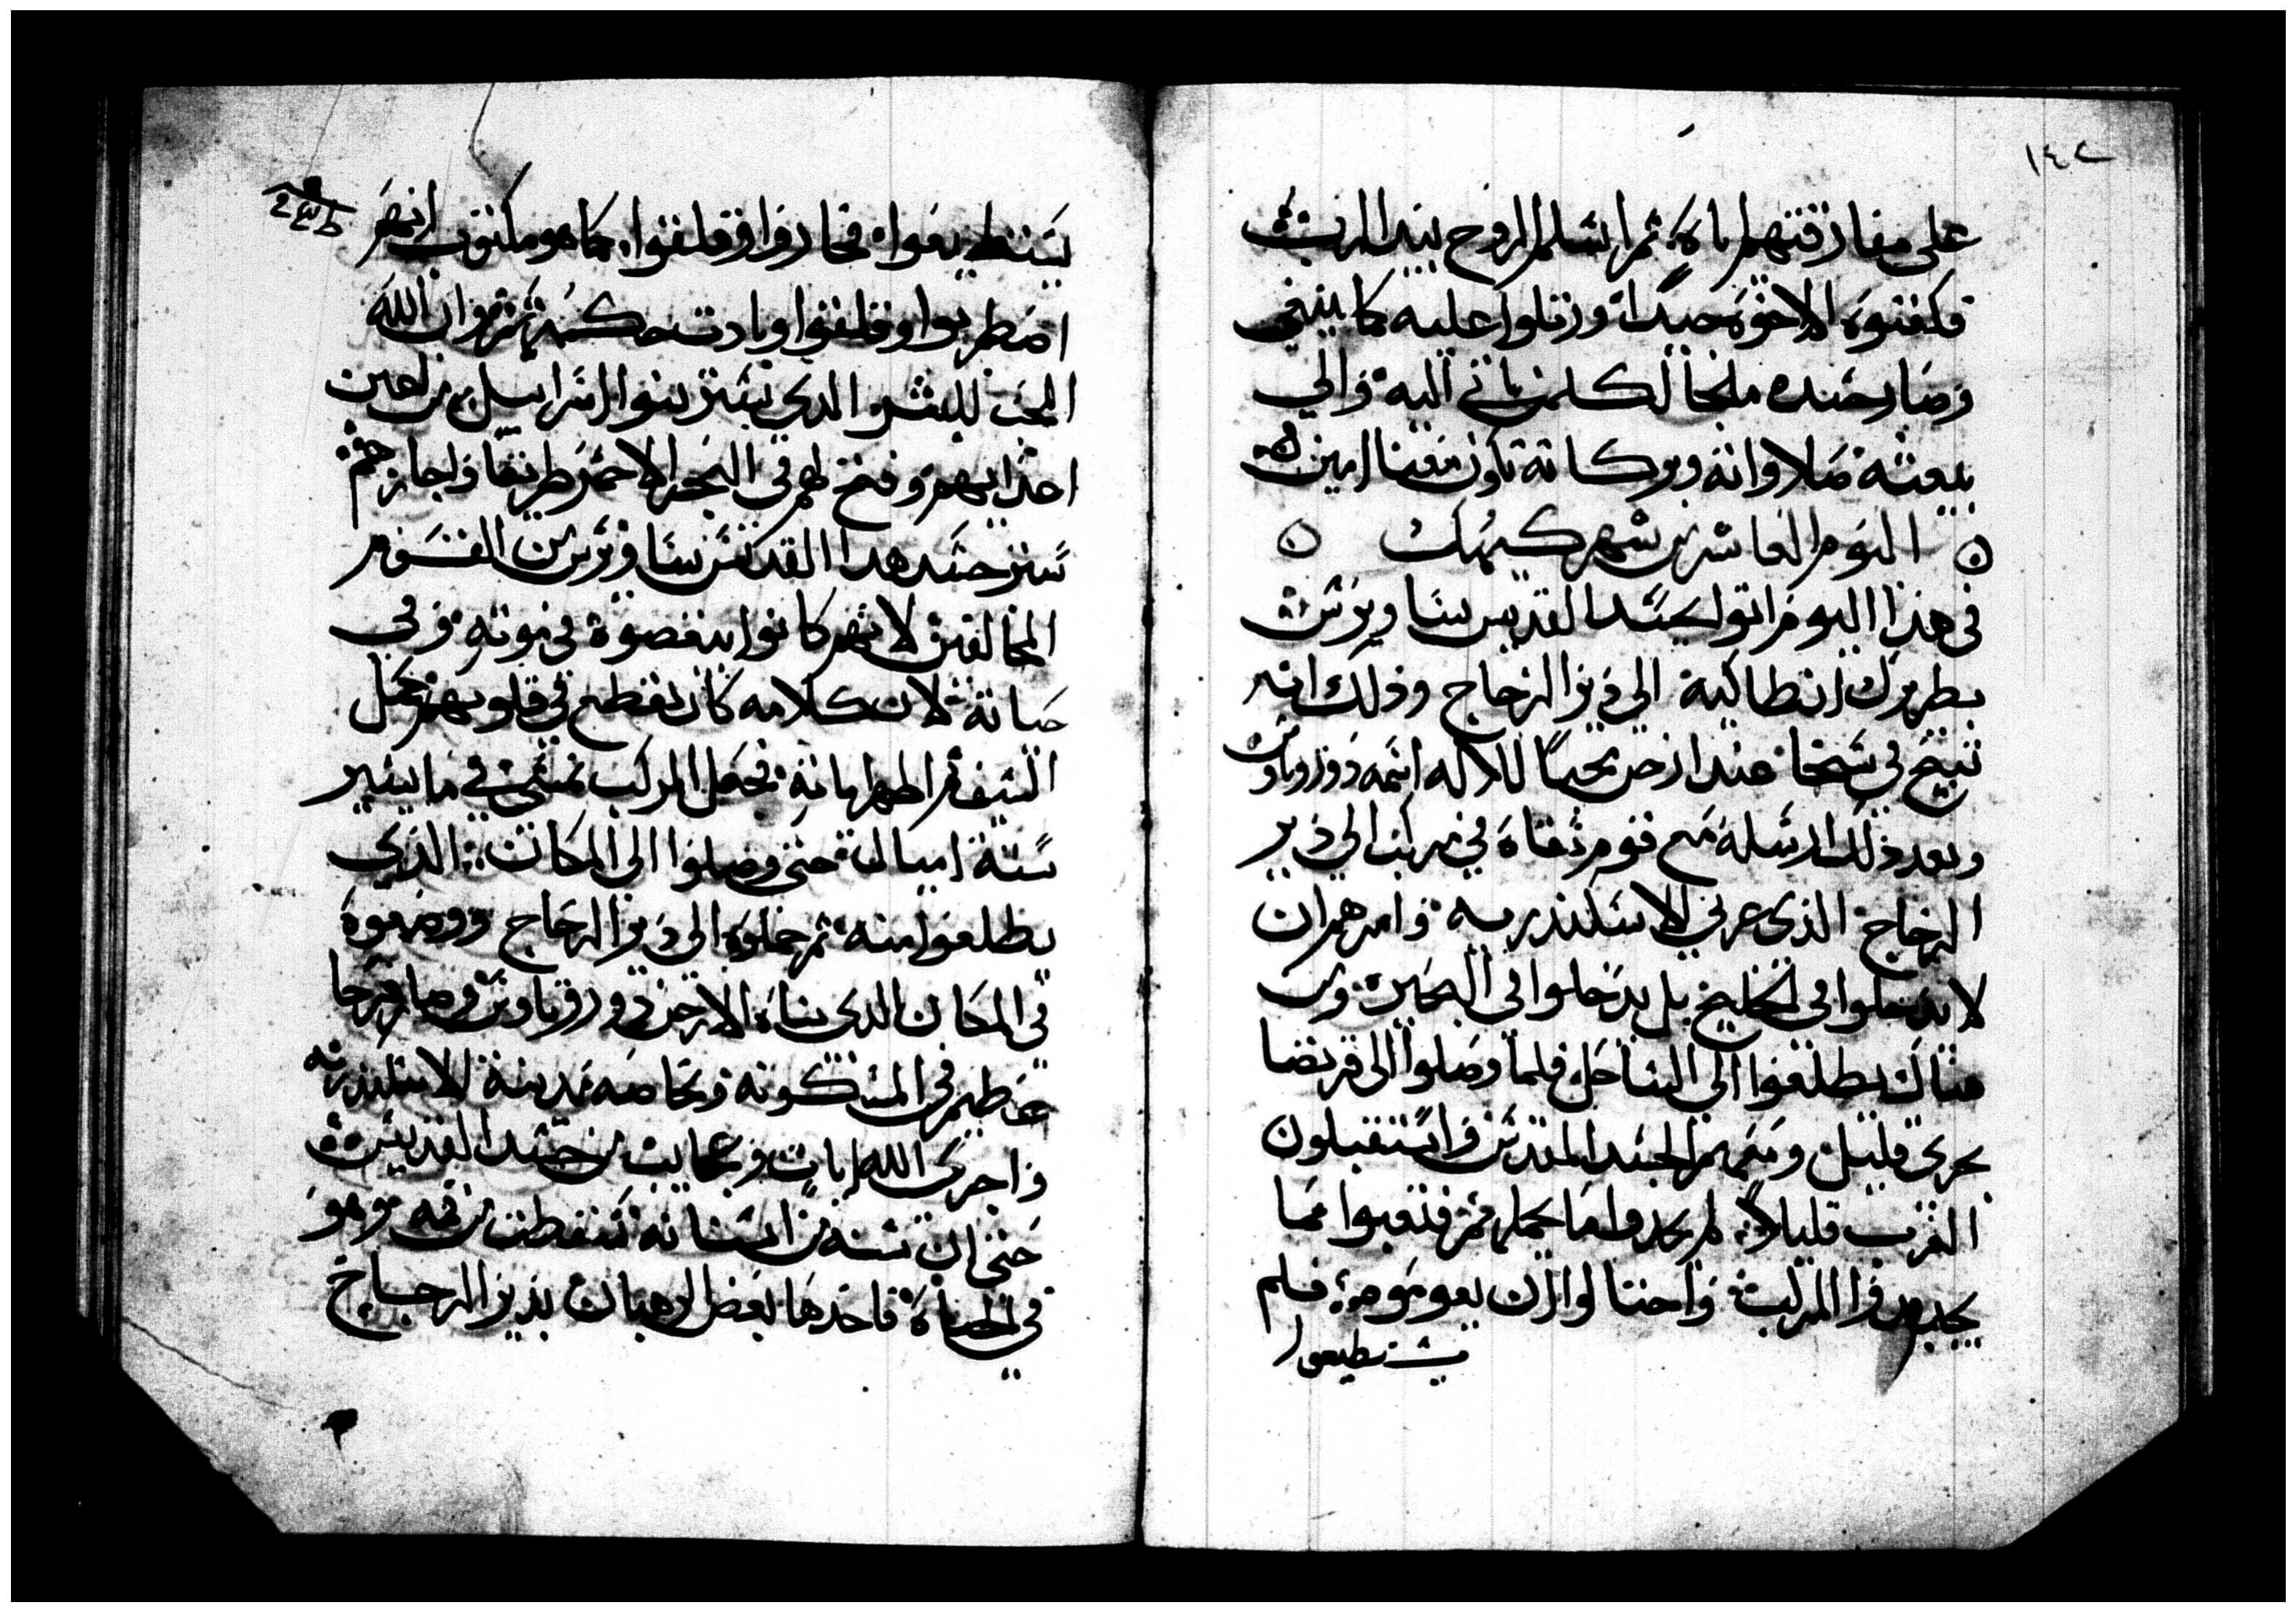 ١٤٢
على مفارقتهم اياه ثم اسلم الروح بيد الرب
فكفنوه الاخوة جيدا ورتلوا عليه كما ينبغي
وصار جسده ملجا لكلمن ياتي اليه والي
بيعته صلاواته وبركاته تكون معنا امين
اليوم العاشر من شهر كيهك
في هذا اليوم اتوا بجسد القديس ساويرس
بطريرك انطاكية الي دير الزجاج وذلك انه
تنيح في سخا عند ارخن محبا للاله اسمه دوروتاوس
وبعد ذلك ارسله مع قوم ثقاة في مركب الي دير
الزجاج الذي غربي الاسكندريه وامرهم ان
لا يدخلوا في الخليج بل يدخلوا في البحيرة ومن
هناك يطلعوا الي الساحل فلما وصلوا الي قرطسا
بحري قليل ومعهم الجسد المقدس واستقبلون
الغرب قليلا لم يجدوا ما يحملهم فتعبوا مما
يجدفوا المركب واحتالوا ان يعوموه فلم
يستطيعوا
يستطيعوا فحاروا وقلقوا كما هو مكتوب انهم
اضطربوا وقلقوا وبادت حكمتهم وان الله
المحب للبشر الدي ستر بنوا اسراييل من اعين
اعدايهم وفتح لهم في البحر الاحمر طريقا واجازهم
ستر جسد هدا القديس ساويرس من القوم
المخالفين لانهم كانوا يبغضوه في موته وفي
حياته لان كلامه كان يقطع في قلوبهم مثل
السيف اظهر اياته فجعل المركب تمشي في ما يسير
ستة اميال حتي وصلوا الي المكان الذي
يطلعوا منه ثم حملوه الي دير الزجاج ووضعوه
في المكان الدي بناه الارخن دوروتاوس وصار فرحا
عظيم في المسكونه وبخاصه مدينة الاسكندريه
واجري الله ايات وعجايب من جسد القديس
حتي ان سنه من اسنانه سقطت من فمه وهو
في الحياة فاخدها بعض الرهبان بدير الزجاج